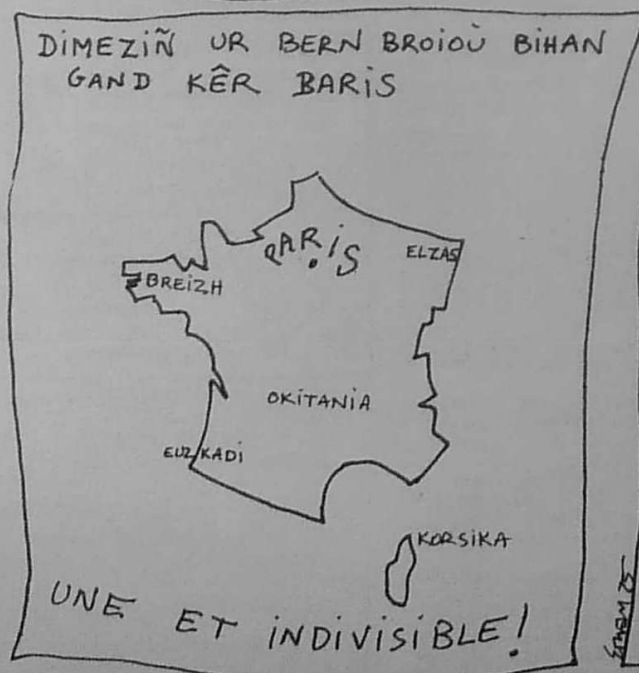 DIMEZIÑ UR BERN BROIOÙ BIHAN
GAND KÊR BARIS
PARIS
ELZAS
BREIZH
OKITANIA
EUZKADI
KORSIKA
UNE ET INDIVISIBLE!